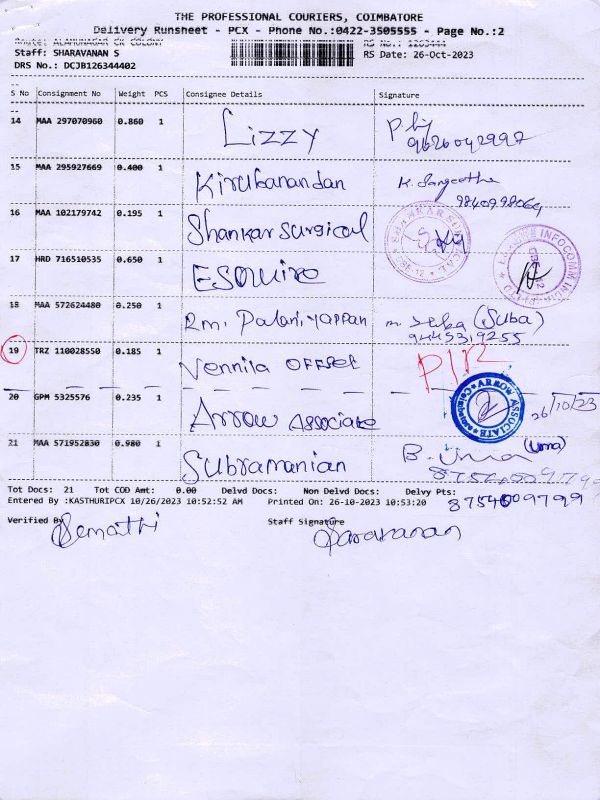 THE PROFESSIONAL COURIERS, COIMBATORE
Delivery Runsheet - PCX - Phone No.:0422-3505555 - Page No.:2
Staff: SHARAVANAN S
RS Date: 26-Oct-2023
DRS No.: DCJB126344402
S No Consignment No Weight PCS Consignee Details Signature
14 MAA 297070960 0.860 1 Lizzy
15 MAA 295927669 0.400 1 Kirubanandan K. Sangeetha
9840998064
16 MAA 102179742 0.195 1 Shankar surgical
17 HRD 716510535 0.650 1 ESquire
18 MAA 572624480 0.250 1 Rm. Palaniyappan (Suba)
9445319255
19 TRZ 110028550 0.185 1 Vennila OFFSET
20 GPM 5325576 0.235 1 Arrow Associate ARROW ASSOCIATE 26/10/23
21 MAA 571952830 0.980 1 Subramanian B. Uma (Uma)
Tot Docs: 21 Tot COD Amt: 0.00 Delvd Docs: Non Delvd Docs: Delvy Pts:
Entered By :KASTHURIPCX 10/26/2023 10:52:52 AM Printed On: 26-10-2023 10:53:20 8754009799
Verified By Staff Signature
Saravanan